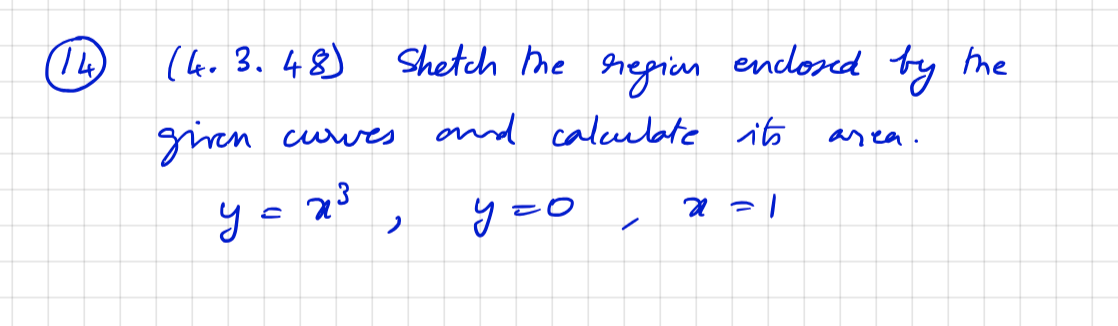 14 (4.3.48) Sketch the region enclosed by the
given curves and calculate its area.
y = x³ , y = 0 , x = 1